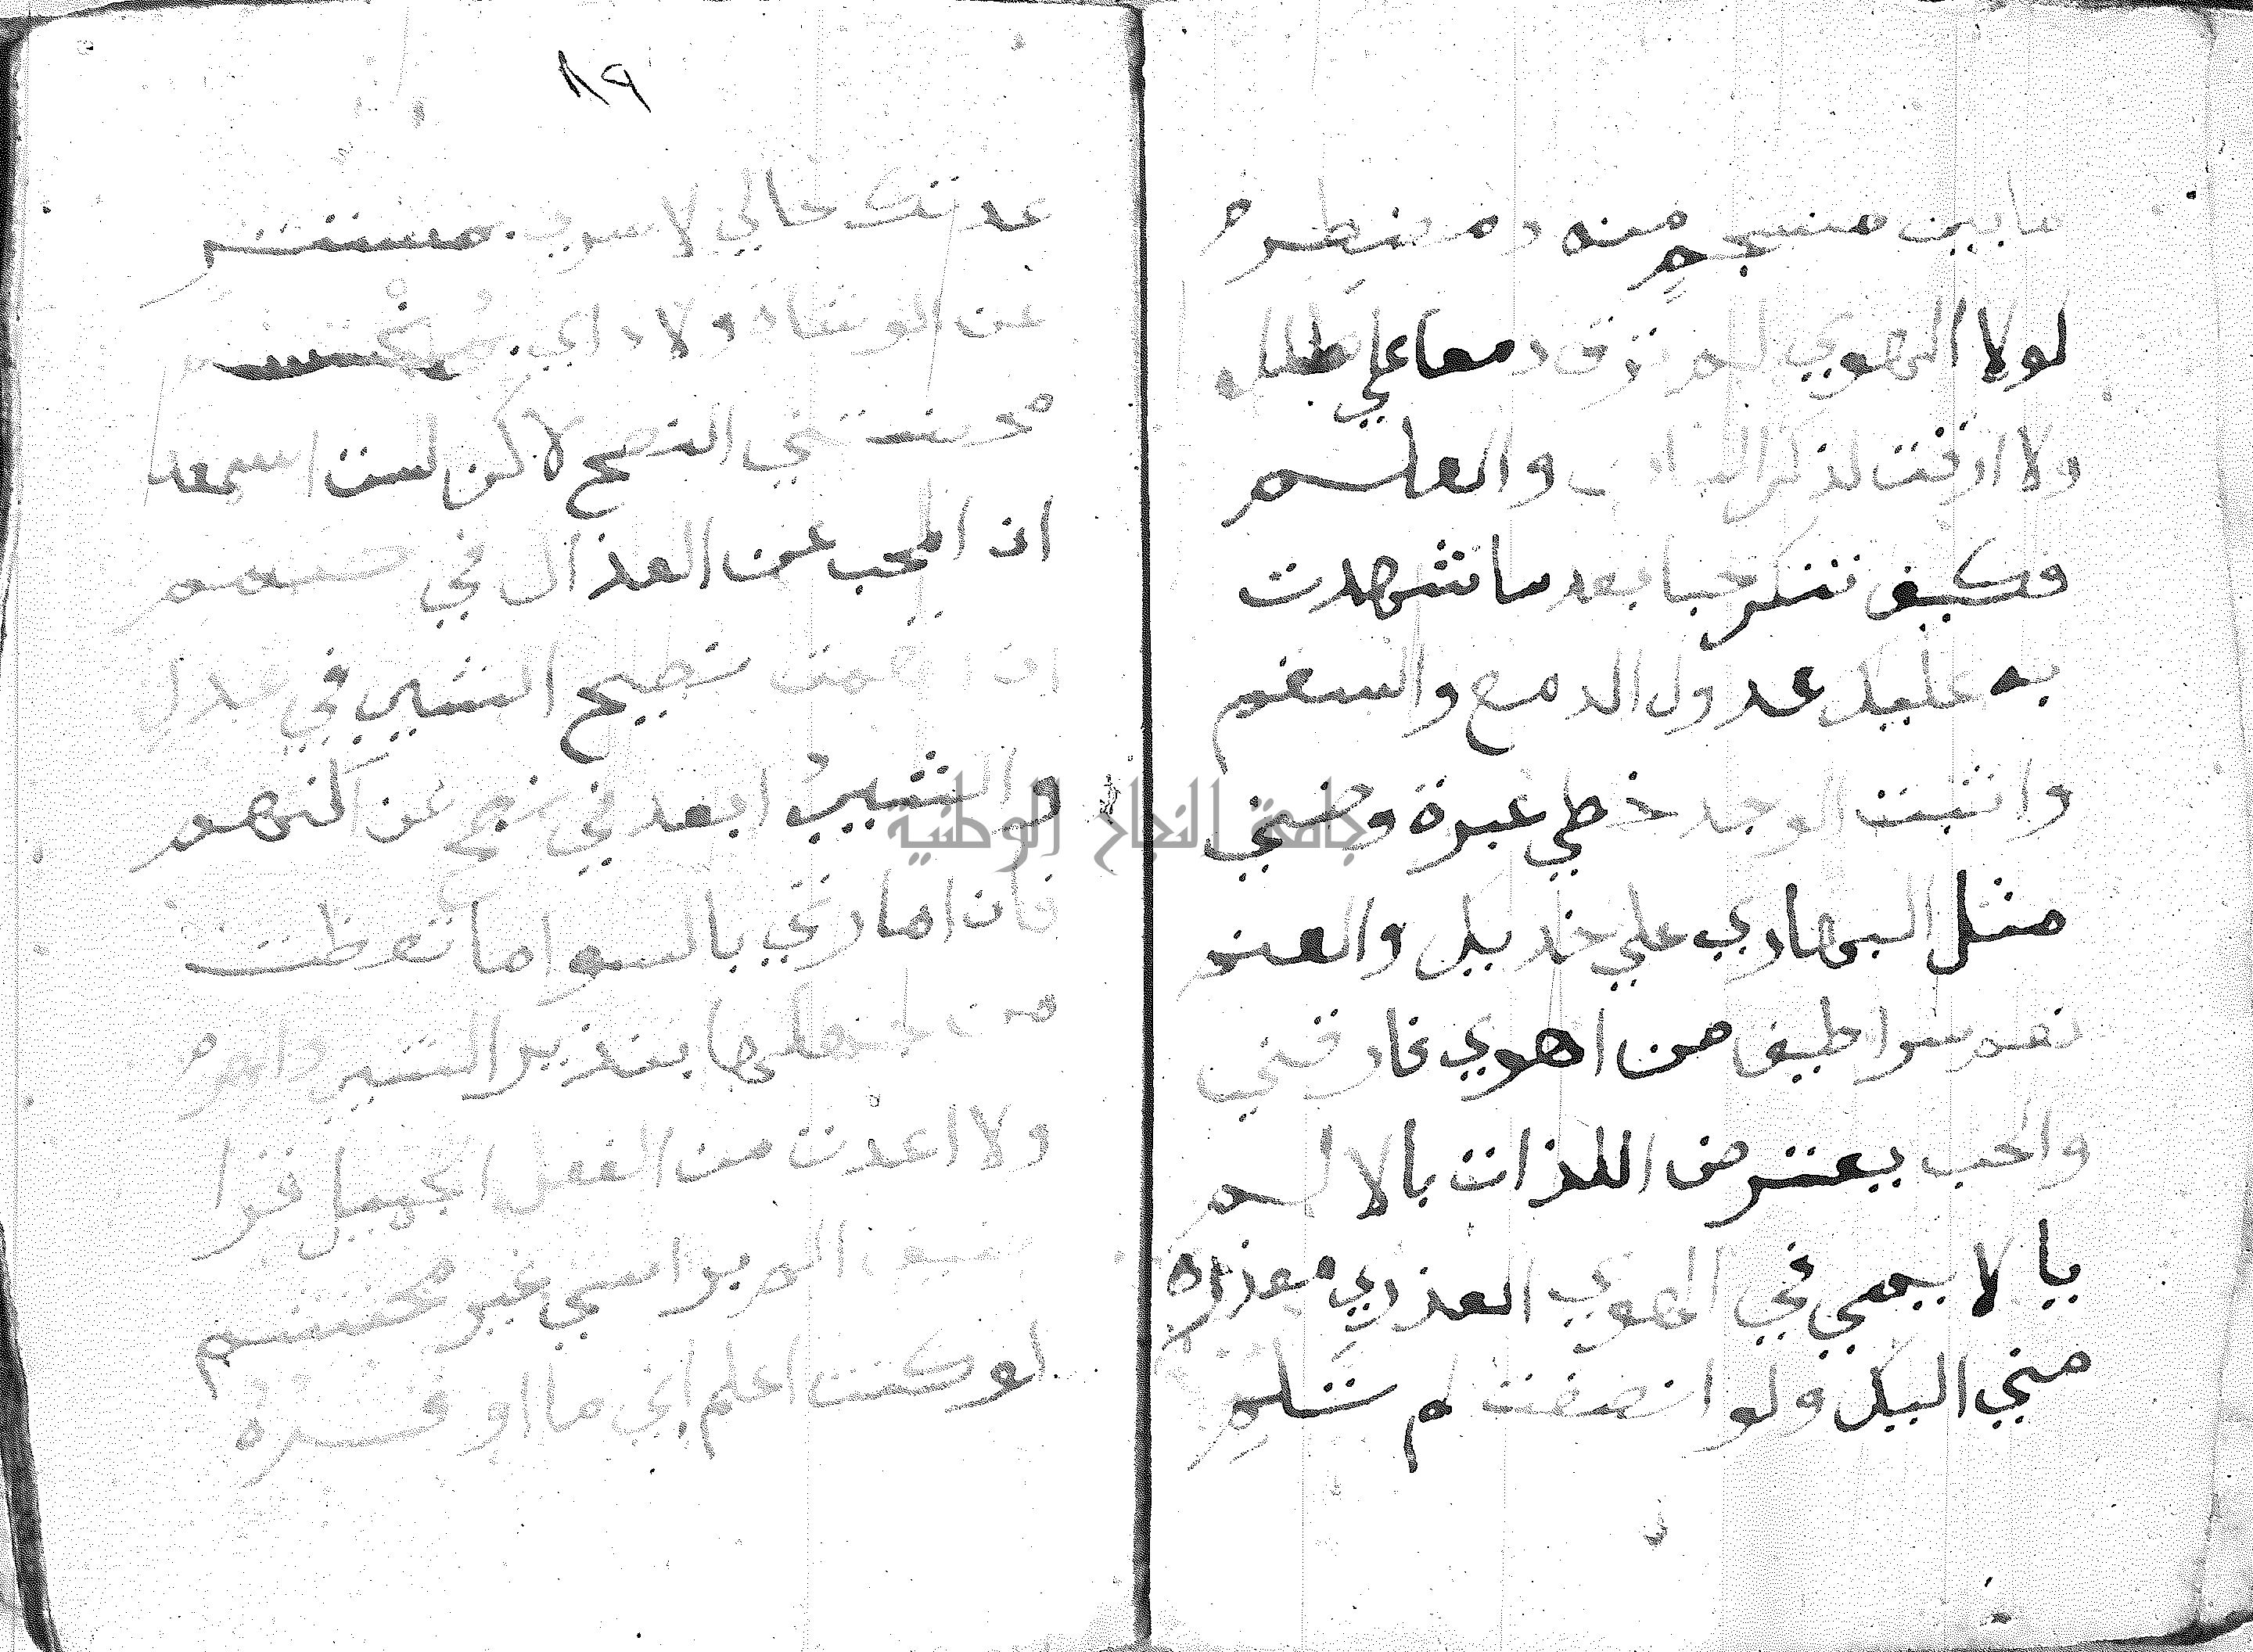 ما بين منسجم منه ومضطرم
لولا الهوي لم ترق دمعا علي طلل
ولا ارقت لذكر البان والعلم
فكيف تنكر حبا بعد ما شهدت
به عليك عدول الدمع والسقم
واثبت الوجد خطي عبرة وضني
مثل البهاري علي خديك والعنم
نعم سرا طيف من اهوي فارقني
والحب يعترض اللذات بالالم
يا لا يمي في الهوي العذري معذرة
مني اليك ولو انصفت لم تلم
٨٩
عدتك حالي لا سري بمستتر
عن الوشاة ولا داي بمنحسم
محضتني النصح لاكن لست اسمعه
ان المحب عن العذال في صمم
اني اتهمت نصيح الشيب في عذل
والشيب ابعد في نصح عن التهم
فان امارتي بالسو ما تعظت
من جهلها بنذير الشيب والهرم
ولا اعدت من الفعل الجميل قرا
ضيف الم براسي غير محتشم
لو كنت اعلم اني ما اوقره
جامعة النجاح الوطنية